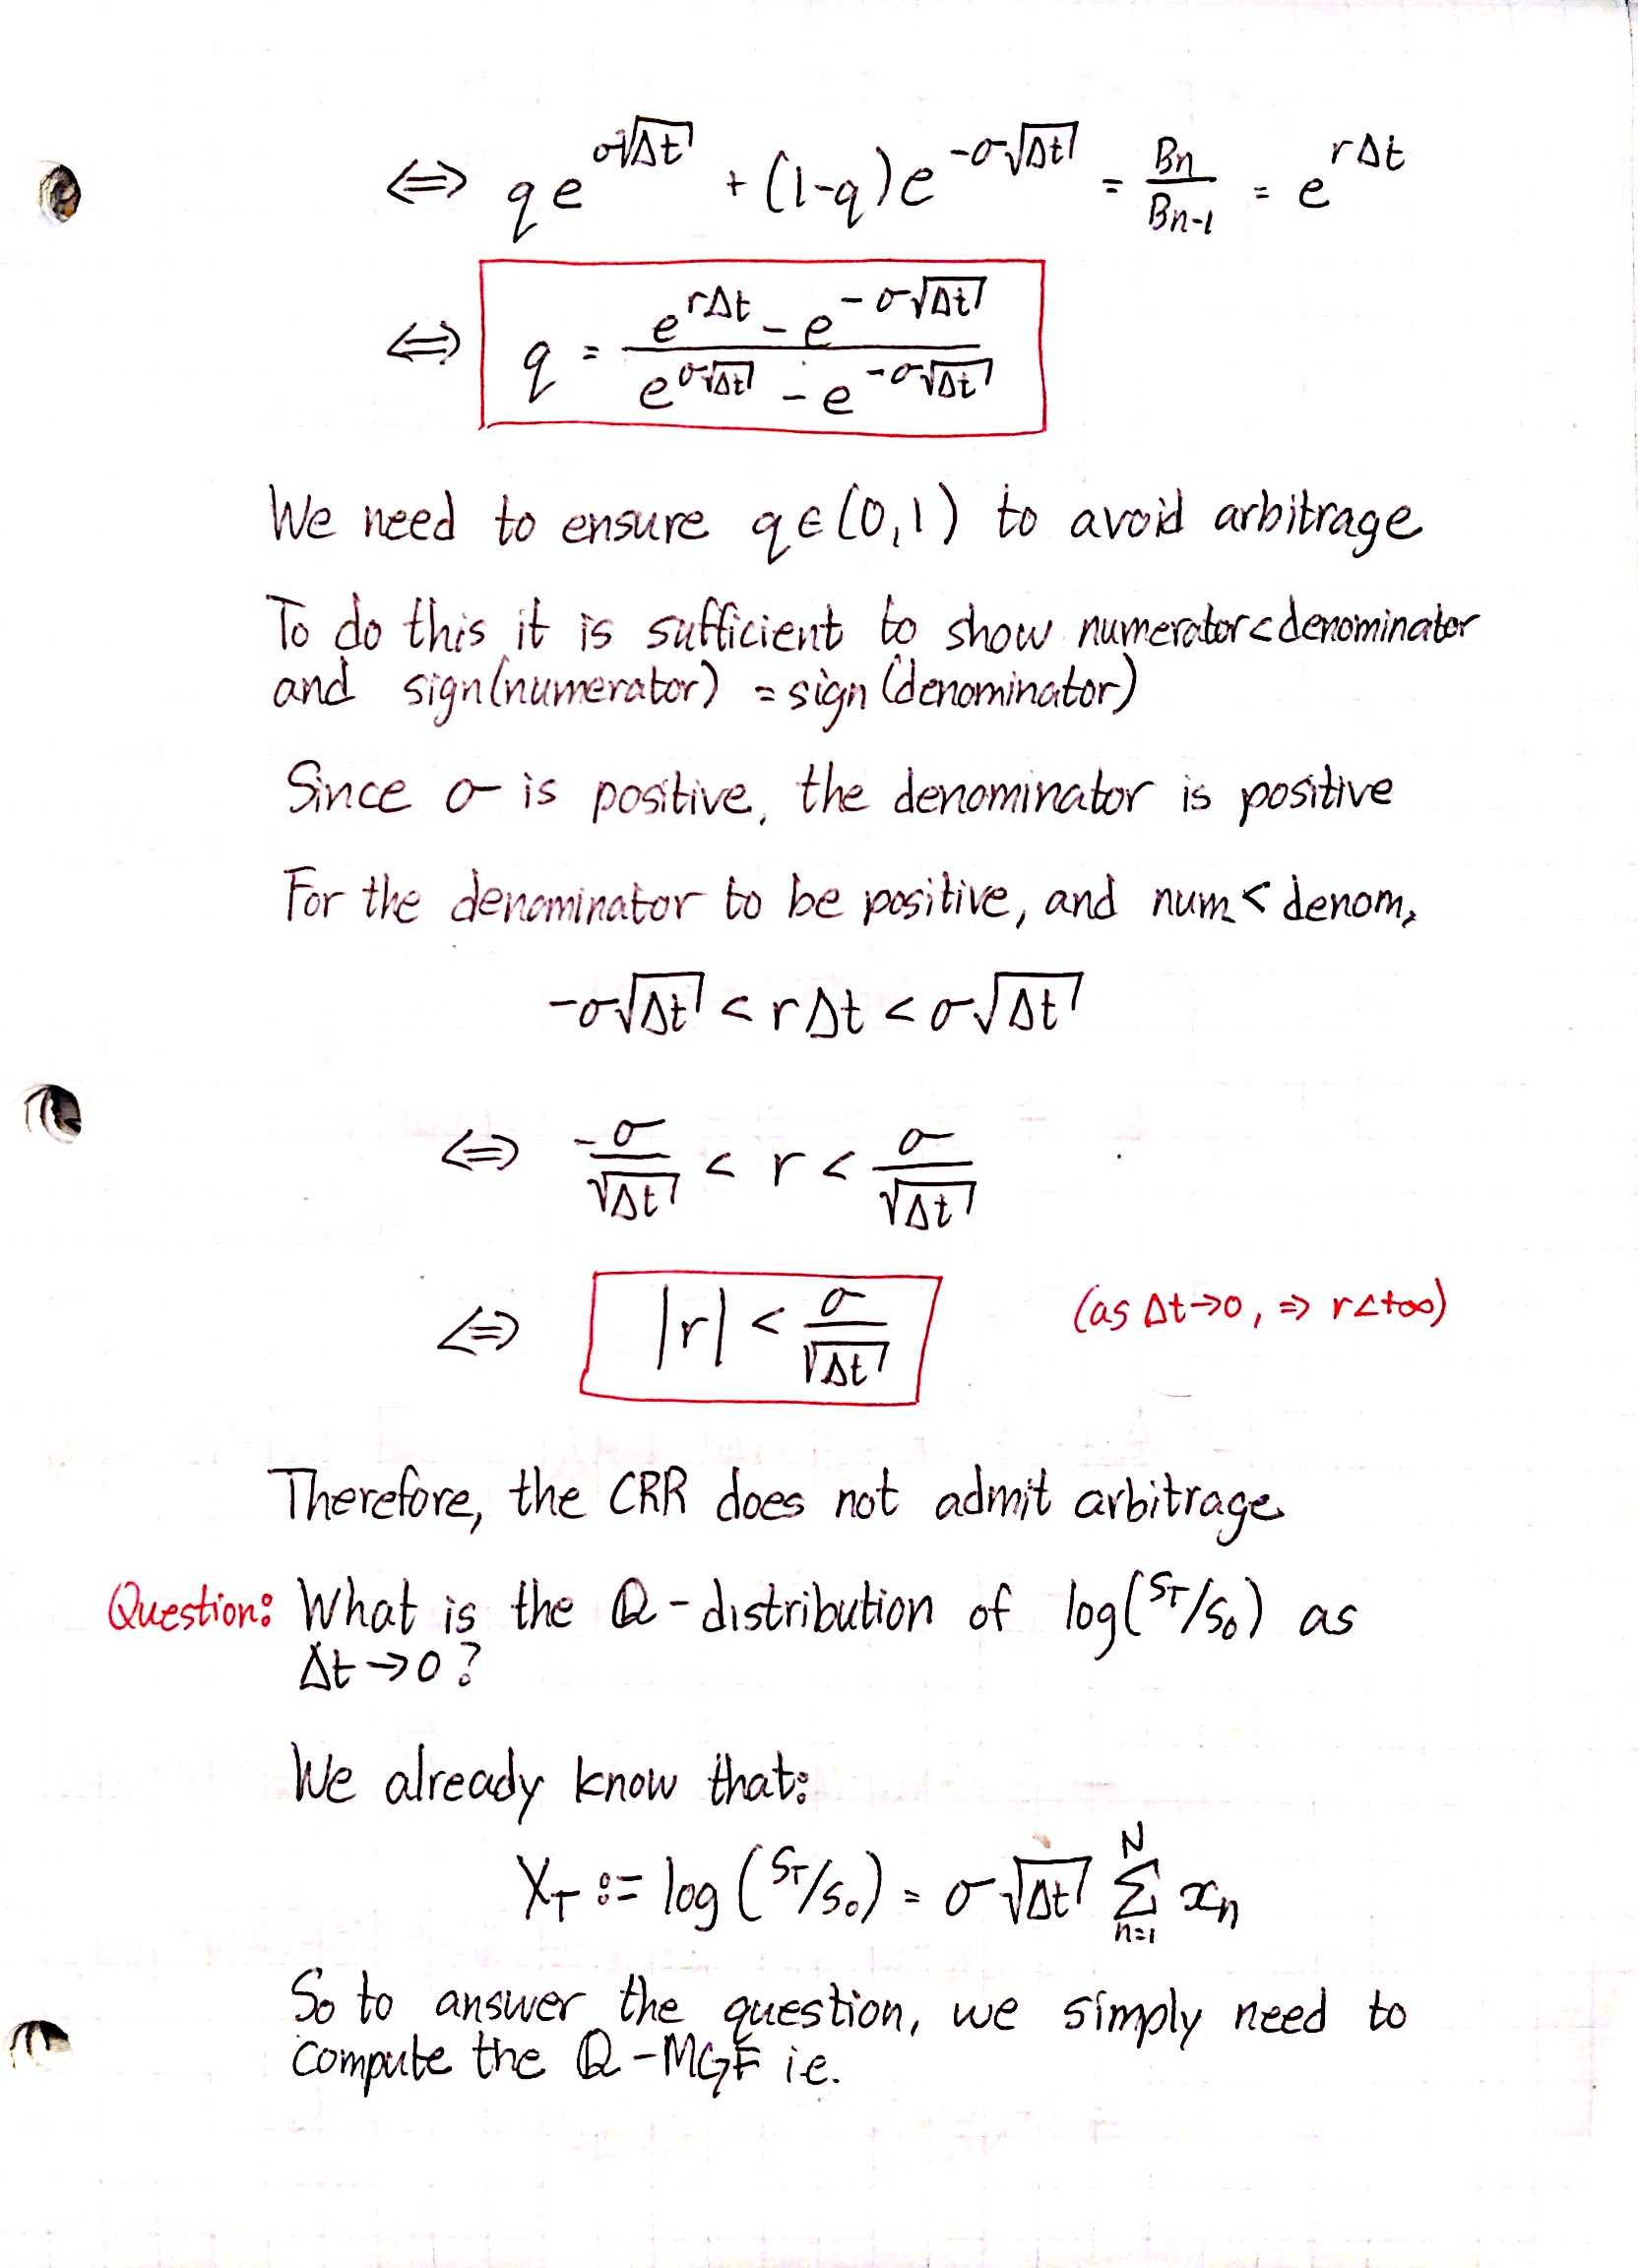 ⇔ qe^{σ√Δt} + (1-q)e^{-σ√Δt} = Bn/Bn-1 = e^{rΔt}
⇔ q = (e^{rΔt} - e^{-σ√Δt}) / (e^{σ√Δt} - e^{-σ√Δt})
We need to ensure q∈(0,1) to avoid arbitrage
To do this it is sufficient to show numerator<denominator
and sign(numerator) = sign(denominator)
Since σ is positive, the denominator is positive
For the denominator to be positive, and num < denom,
-σ√Δt < rΔt < σ√Δt
⇔ -σ/√Δt < r < σ/√Δt
⇔ |r| < σ/√Δt (as Δt→0, ⇒ r<+∞)
Therefore, the CRR does not admit arbitrage
Question: What is the Q-distribution of log(S_T/S_0) as
Δt→0?
We already know that:
X_T := log(S_T/S_0) = σ√Δt Σ_{n=1}^{N} x_n
So to answer the question, we simply need to
compute the Q-MGF ie.